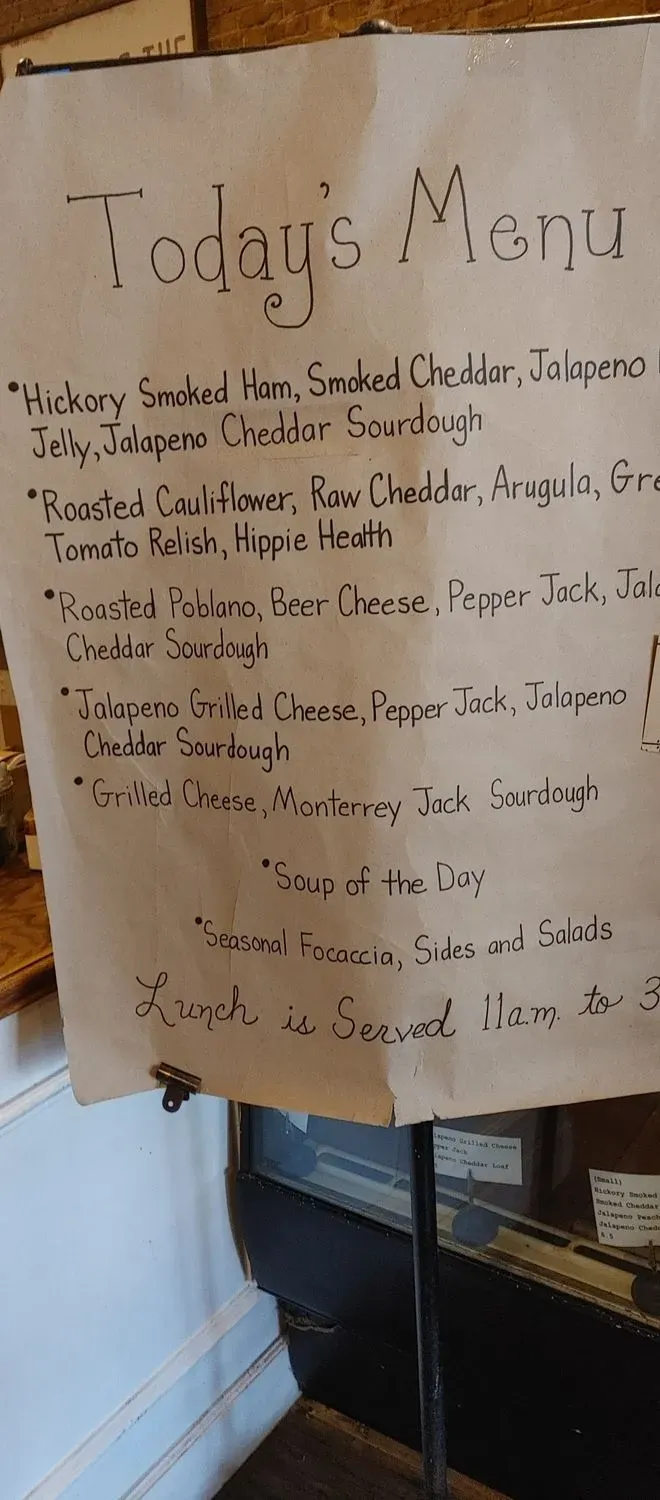 THE
Today's Menu
•Hickory Smoked Ham, Smoked Cheddar, Jalapeno
Jelly, Jalapeno Cheddar Sourdough
•Roasted Cauliflower, Raw Cheddar, Arugula, Gre
Tomato Relish, Hippie Health
•Roasted Poblano, Beer Cheese, Pepper Jack, Jala
Cheddar Sourdough
•Jalapeno Grilled Cheese, Pepper Jack, Jalapeno
Cheddar Sourdough
•Grilled Cheese, Monterrey Jack Sourdough
•Soup of the Day
•Seasonal Focaccia, Sides and Salads
Lunch is Served 11a.m. to 3
lapeno Grilled Cheese
pper Jack
lapeno Cheddar Loaf
(Small)
Hickory Smoked
Smoked Cheddar
Jalapeno Peach
Jalapeno Ched